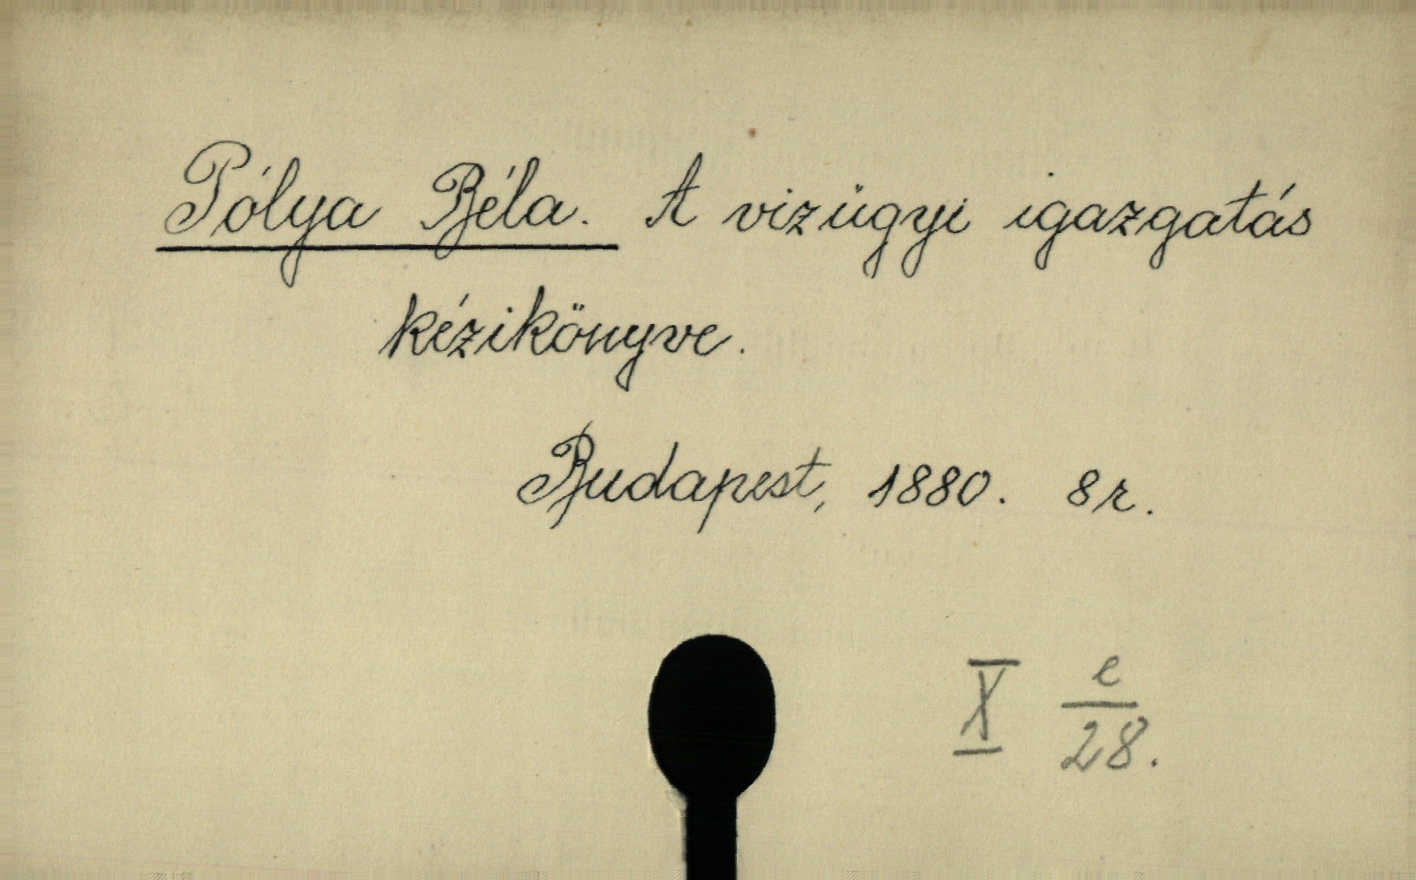 Pólya Béla. A vizügyi igazgatás
kézikönyve.
Budapest, 1880. 8r.
X e/28.